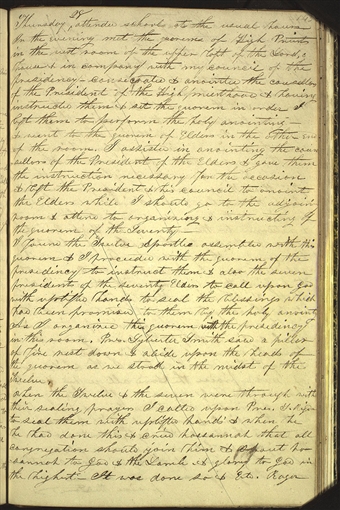 Thursday, attended school at the usual hour
In the evening met the quorum of High Priests
in the west room of the upper loft of the Lord's
house & in company with my council of the
presidency - consecrated & anointed the counsellors
of the President of the High priesthood & having
instructed them & set the quorum in order I
left them to perform the holy anointing -
& went to the quorum of Elders in the other end
of the room. I assisted in anointing the coun
sellors of the President of the Elders & gave them
the instruction necessary for the occasion
& left the President & his council to anoint
the Elders while I should go to the adjoining
room & attend to organizing & instructing of
the quorum of the Seventy -
I found the Twelve Apostles assembled with this
quorum & I proceeded with the quorum of the
presidency to instruct them & also the seven
presidents of the seventy Elders to call upon God
with uplifted hands to seal the blessings which
had been promised to them by the holy anointing
As I organized this quorum with the presidency
in this room, Pres. Sylvester Smith saw a piller
of fire rest down & abide upon the heads of
the quorum as we stood in the midst of the
Twelve.
When the Twelve & the seven were through with
their sealing prayers I called upon Pres. S. Rigdon
to seal them with uplifted hands & when he
had done this & cried hossannah that all
congregation should join them & shout ho
sannah to God & the Lamb & glory to God in
the highest - It was done so & Eld. Roger